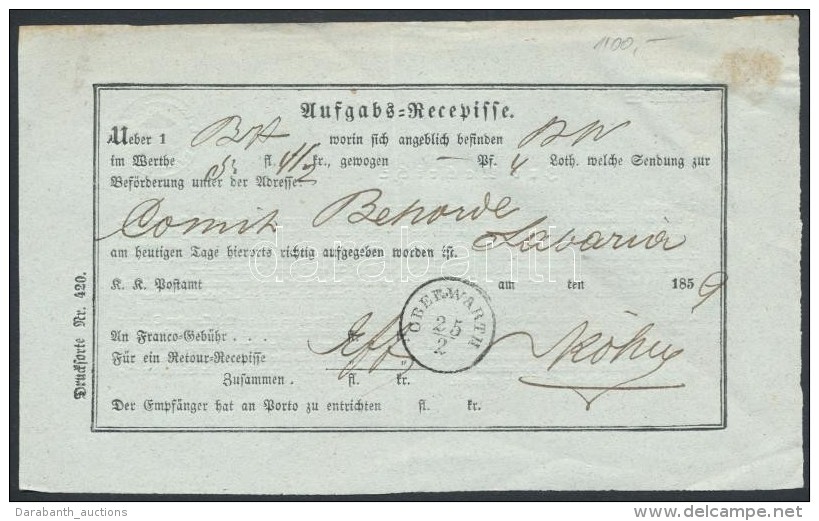 1100,-
Aufgabs=Recepisse.
Ueber 1 worin sich angeblich befinden
im Werthe fl. kr., gewogen — Pf. 4 Loth. welche Sendung zur
Beförderung unter der Adresse
Comit. Behörde
Sabaria
am heutigen Tage hierorts richtig aufgegeben worden ist.
K. K. Postamt am ten 1859
OBERWARTH
25/2
An Franco-Gebühr . . . fl. kr.
Für ein Retour-Recepisse „
Zusammen . fl. kr.
Der Empfänger hat an Porto zu entrichten fl. kr.
Drucksorte Nr. 420.
darabanth
Darabanth_auctions
delcampe.net